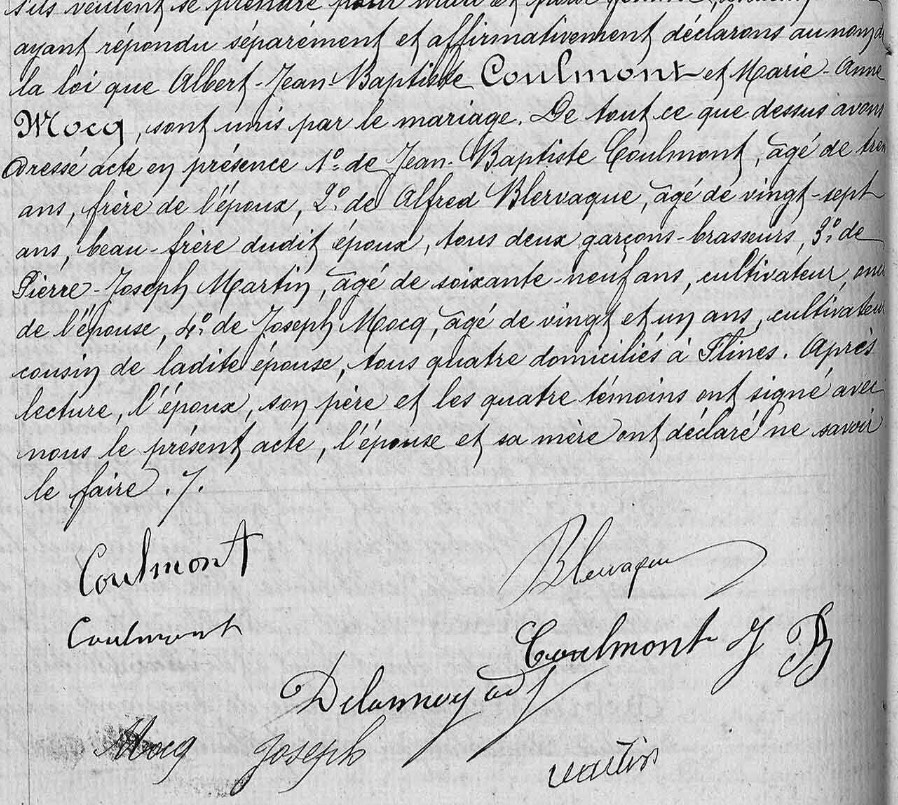 s'ils veulent se prendre pour mari et pour femme,
ayant répondu séparément et affirmativement déclarons au nom de
la loi que Albert-Jean-Baptiste Coulmont et Marie-Anne
Mocq, sont unis par le mariage. De tout ce que dessus avons
dressé acte en présence 1º de Jean-Baptiste Coulmont, agé de
ans, frère de l'époux, 2º de Alfred Blervaque, agé de vingt-sept
ans, beau-frère dudit époux, tous deux garçons-brasseurs, 3º de
Pierre-Joseph Martin, agé de soixante-neuf ans, cultivateur,
de l'épouse, 4º de Joseph Mocq, agé de vingt et un ans, cultivateur
cousin de ladite épouse, tous quatre domiciliés à Flines. Après
lecture, l'époux, son père et les quatre témoins ont signé avec
nous le présent acte, l'épouse et sa mère ont déclaré ne savoir
le faire ./.
Coulmont
Blervaque
Coulmont
Coulmont J B
Delannoy adj
Mocq Joseph
Martin